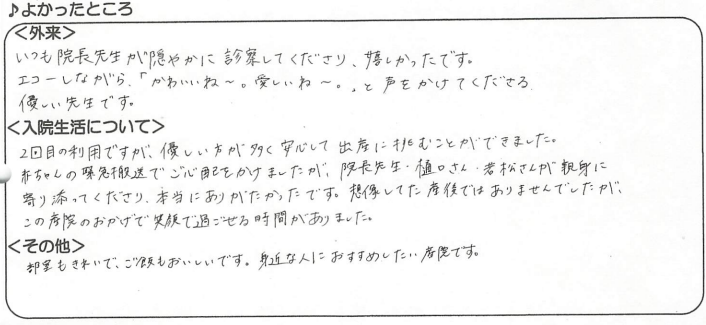 ♪よかったところ
<外来>
いつも院長先生が穏やかに診察してくださり、嬉しかったです。
エコーしながら、「かわいいね～。愛しいね～。」と声をかけてくださる
優しい先生です。
<入院生活について>
2回目の利用ですが、優しい方が多く安心して出産に挑むことができました。
赤ちゃんの緊急搬送でご心配をかけましたが、院長先生・樋口さん・若松さんが親身に
寄り添ってくださり、本当にありがたかったです。想像してた産後ではありませんでしたが、
この産院のおかげで笑顔で過ごせる時間がありました。
<その他>
部屋もきれいで、ご飯もおいしいです。身近な人におすすめしたい産院です。